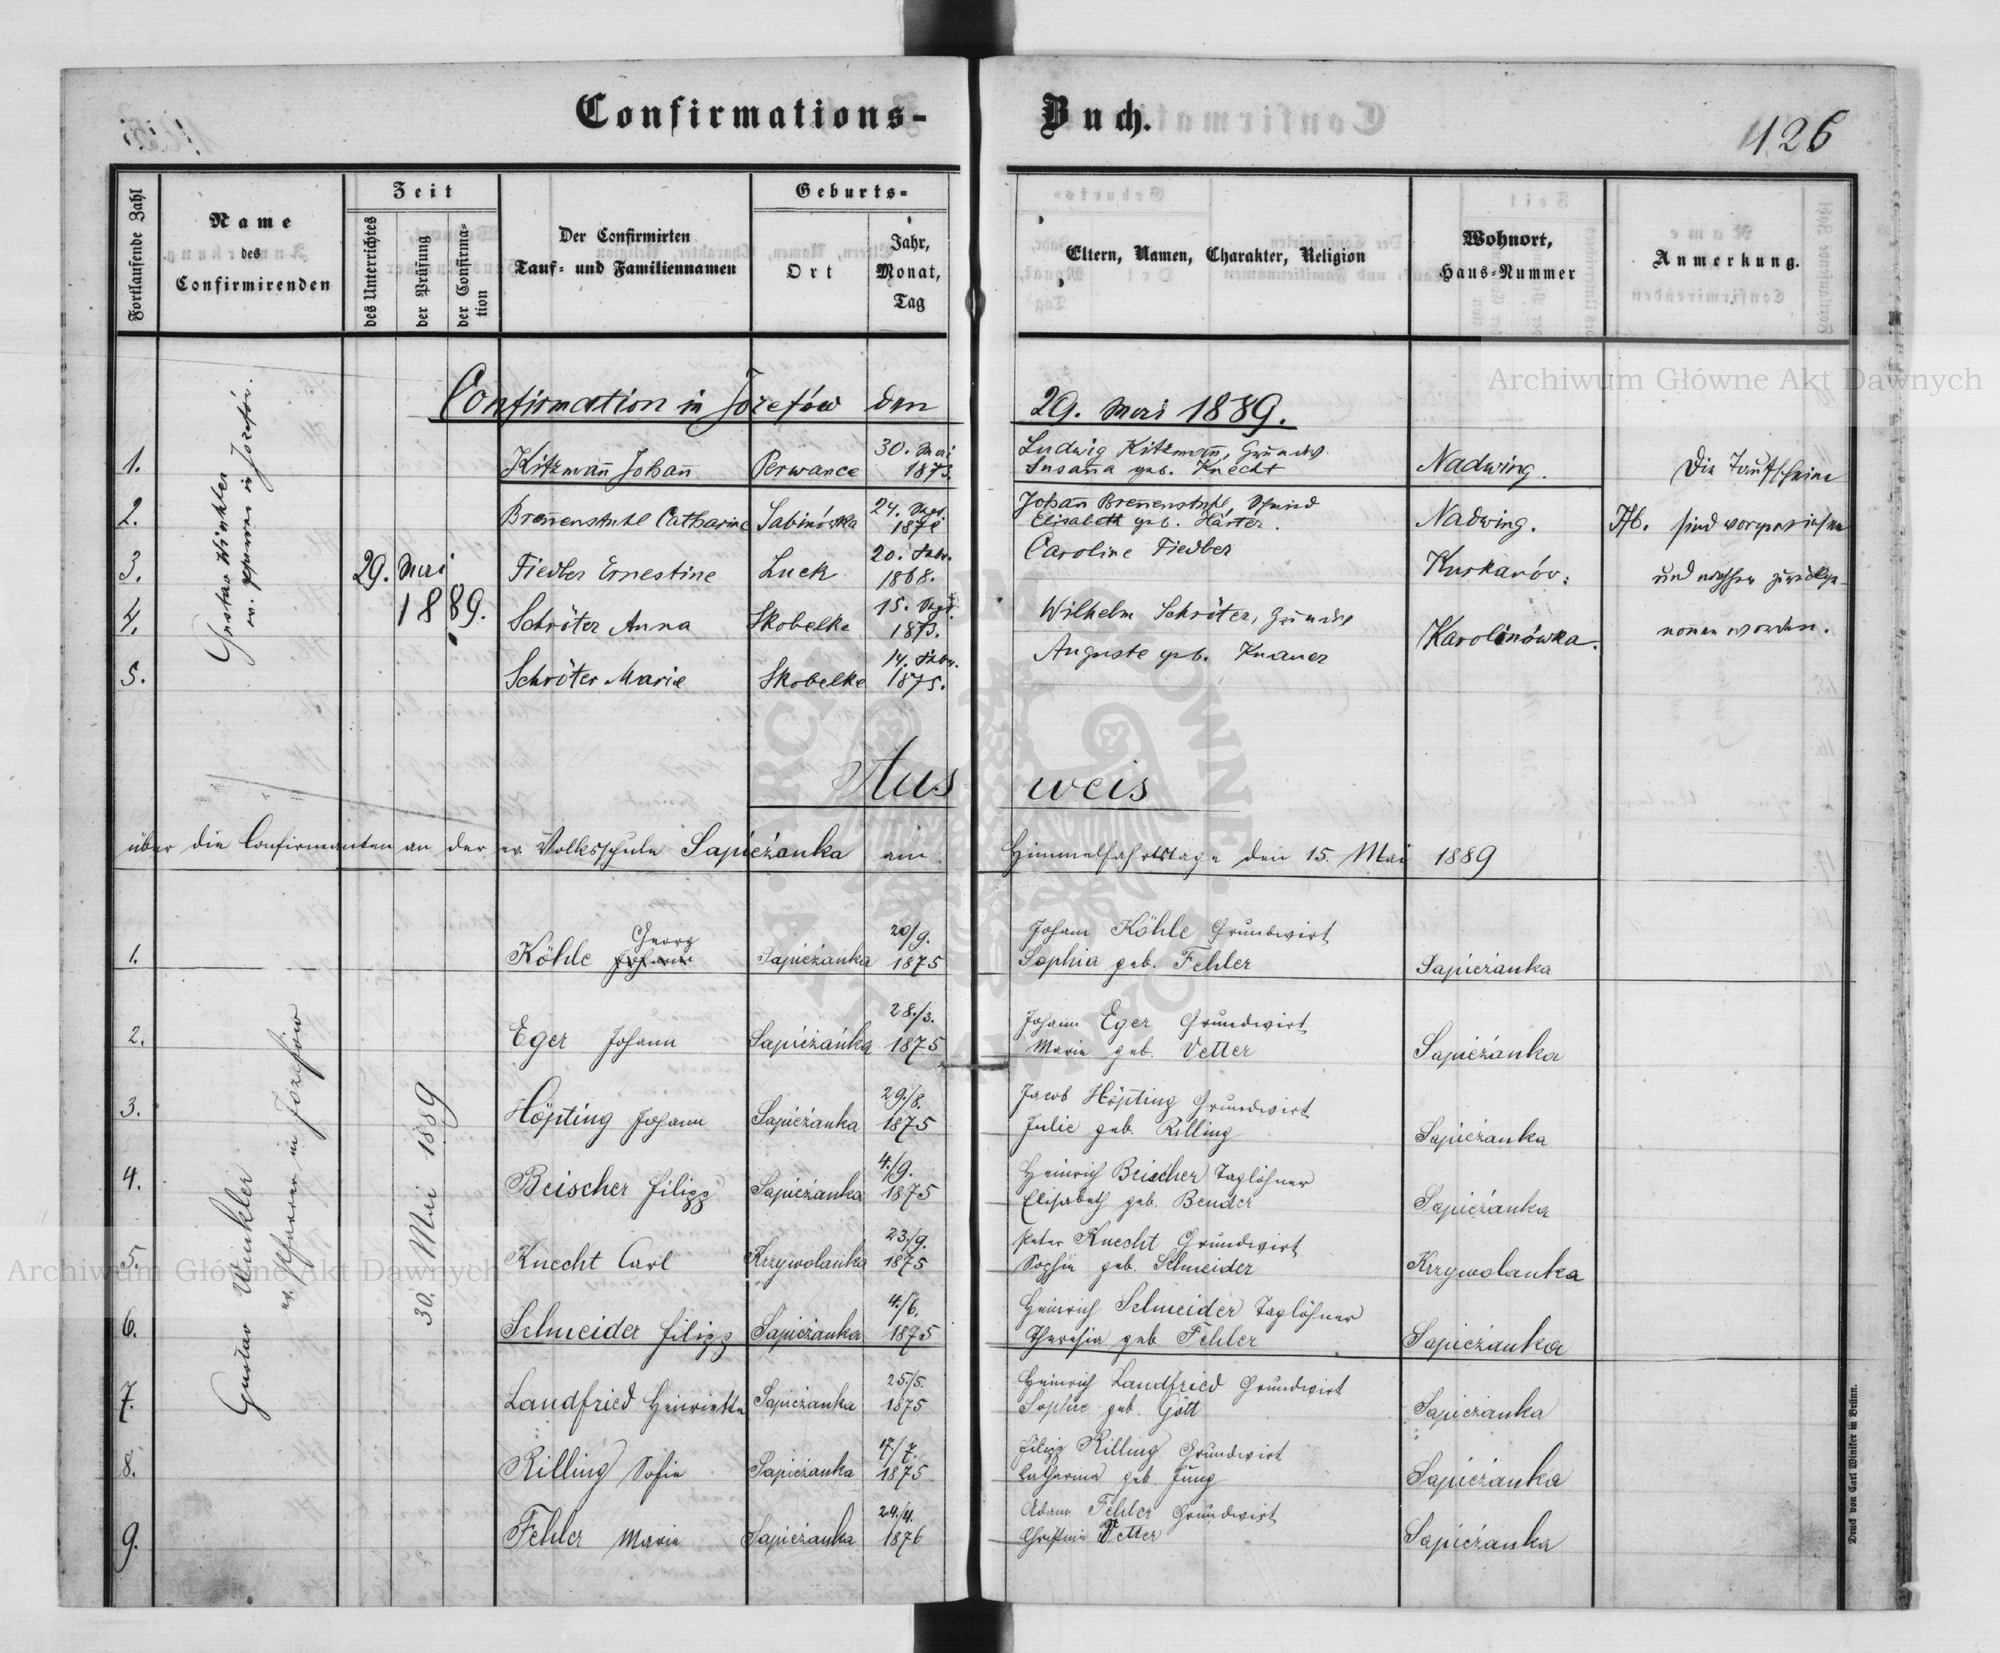 Confirmations-Buch.
126
Fortlaufende Zahl
Name des Confirmirenden
Zeit
des Unterrichtes
der Prüfung
der Confirmation
Der Confirmirten
Tauf- und Familiennamen
Geburts-
Ort
Jahr, Monat, Tag
Eltern, Namen, Charakter, Religion
Wohnort, Haus-Nummer
Anmerkung.
Confirmation in Józefów den 29. Mai 1889.
Gustav Winkler
ev. Pfarrer in Józefów.
29. Mai
1889.
1. Kitzmañ Johañ Perwance 30. Mai 1873 Ludwig Kitzmañ, Grundw. Susaña geb. Knecht Nadwing.
2. Breñenstuhl Catharine Sabinówka 24. 187 Johañ Breñenstuhl, Elisabeth geb. Härter. Nadwing.
3. Fiedler Ernestine Luck 20. 1868. Caroline Fiedler
4. Schröter Anna Skobelke 15. 1873. Wilhelm Schröter, Karolinówka.
5. Schröter Marie Skobelke 14. 1875. Auguste geb. Knauer
Die Taufscheine
sind vorgewiesen
und
nomen worden.
Ausweis
über die Confirmanten an der ev. Volksschule Sapieżanka am Himmelfahrtstage den 15. Mai 1889
Gustav Winkler
ev. Pfarrer in Józefów
30. Mai 1889
1. Köhle Georg Sapieżanka 20/9. 1875 Johann Köhle Grundwirt Sophia geb. Fehler Sapieżanka
2. Eger Johann Sapieżanka 28./3. 1875 Johann Eger Grundwirt Marie geb. Vetter Sapieżanka
3. Höpting Johann Sapieżanka 29./8. 1875 Jacob Höpting Grundwirt Julie geb. Rilling Sapieżanka
4. Beischer Filipp Sapieżanka 4./9. 1875 Heinrich Beischer Taglöhner Elisabeth geb. Bender Sapieżanka
5. Knecht Carl Krzywolanka 23./9. 1875 Peter Knecht Grundwirt Sophie geb. Schneider Krzywolanka
6. Schneider Filipp Sapieżanka 4./6. 1875 Heinrich Schneider Taglöhner Theresia geb. Fehler Sapieżanka
7. Landfried Henriette Sapieżanka 25./5. 1875 Heinrich Landfried Grundwirt Sophie geb. Gött Sapieżanka
8. Rilling Sofie Sapieżanka 17/7. 1875 Filipp Rilling Grundwirt Catharina geb. Jung Sapieżanka
9. Fehler Marie Sapieżanka 24./4. 1876 Adam Fehler Grundwirt Christine Vetter Sapieżanka
Druck von Carl Winiker in Brünn.
Archiwum Główne Akt Dawnych
Archiwum Główne Akt Dawnych